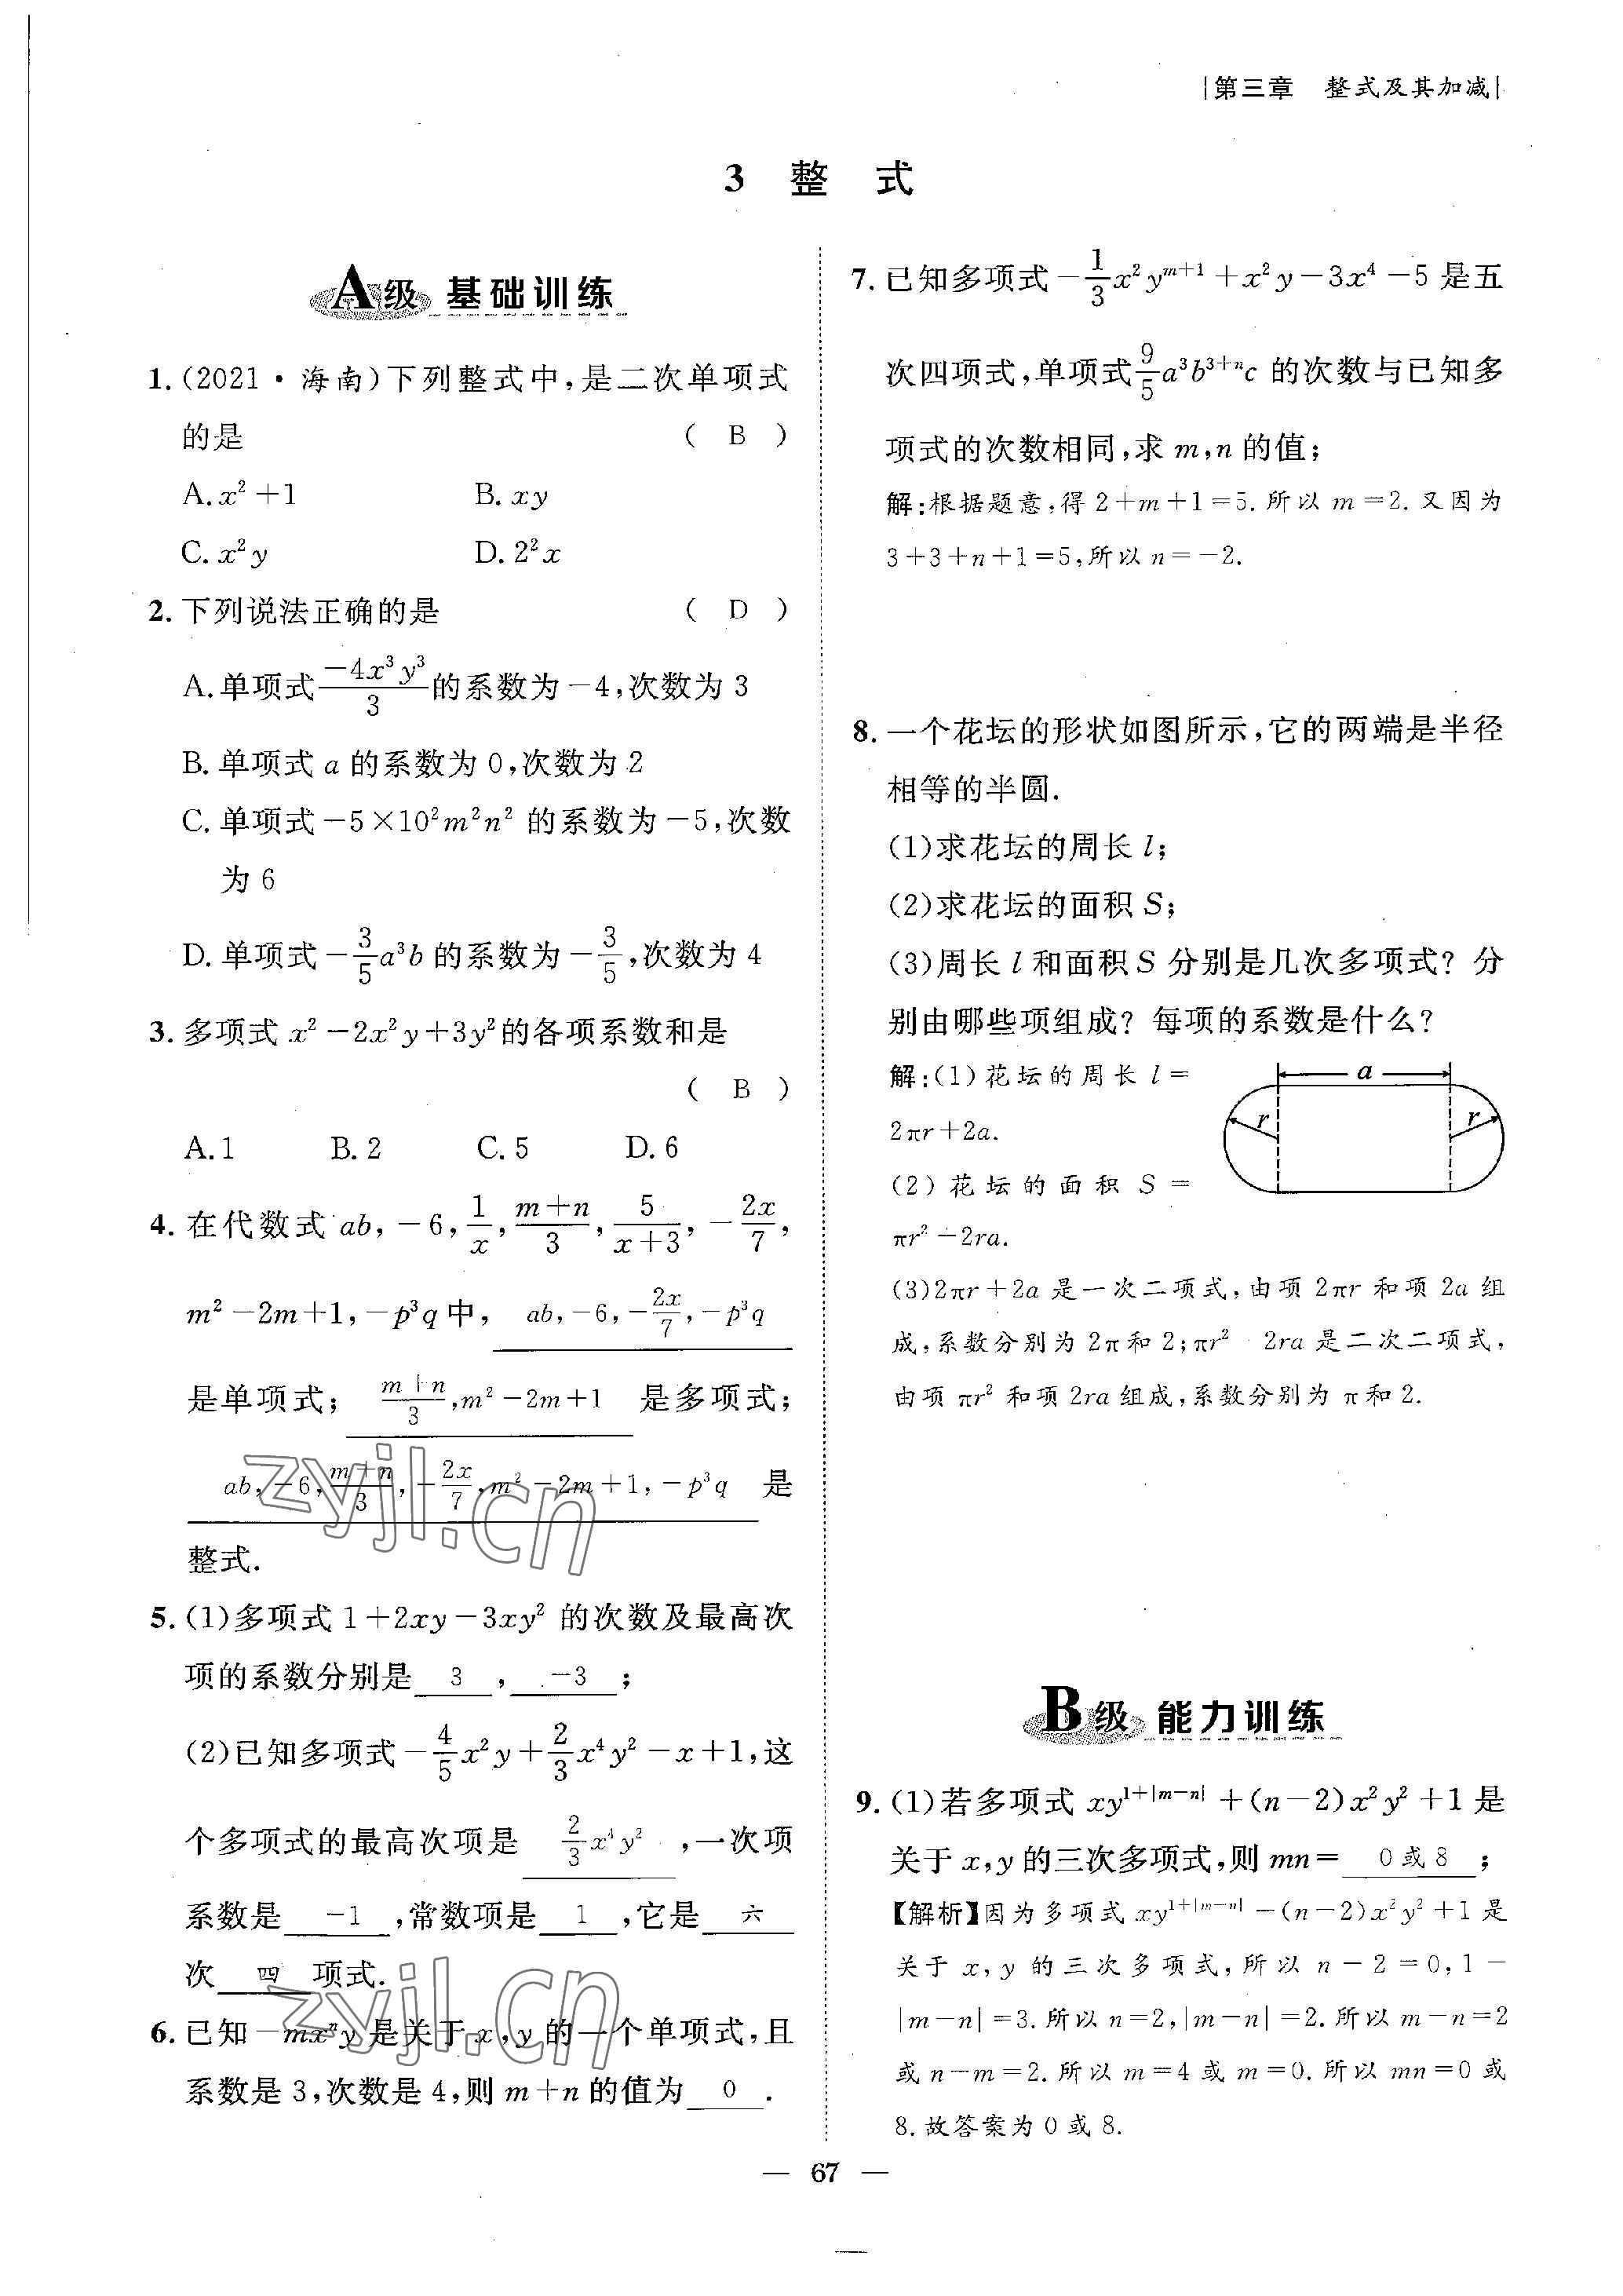 |第三章 整式及其加减|
3 整 式
A级 基础训练
1.(2021·海南)下列整式中,是二次单项式
的是 ( B )
A.x²+1 B.xy
C.x²y D.2²x
2.下列说法正确的是 ( D )
A.单项式\frac{-4x³y³}{3}的系数为-4,次数为3
B.单项式a的系数为0,次数为2
C.单项式-5×10²m²n²的系数为-5,次数
为6
D.单项式-\frac{3}{5}a³b的系数为-\frac{3}{5},次数为4
3.多项式x²-2x²y+3y²的各项系数和是
( B )
A.1 B.2 C.5 D.6
4.在代数式ab,-6,\frac{1}{x},\frac{m+n}{3},\frac{5}{x+3},-\frac{2x}{7},
m²-2m+1,-p³q中, ab,-6,-\frac{2x}{7},-p³q
是单项式; \frac{m+n}{3},m²-2m+1 是多项式;
ab,-6,\frac{m+n}{3},-\frac{2x}{7},m²-2m+1,-p³q 是
整式.
5.(1)多项式1+2xy-3xy²的次数及最高次
项的系数分别是 3 , -3 ;
(2)已知多项式-\frac{4}{5}x²y+\frac{2}{3}x⁴y²-x+1,这
个多项式的最高次项是 \frac{2}{3}x⁴y² ,一次项
系数是 -1 ,常数项是 1 ,它是 六
次 四 项式.
6.已知-mxⁿy是关于x,y的一个单项式,且
系数是3,次数是4,则m+n的值为 0 .
7.已知多项式-\frac{1}{3}x²y^{m+1}+x²y-3x⁴-5是五
次四项式,单项式\frac{9}{5}a³b^{3+n}c的次数与已知多
项式的次数相同,求m,n的值;
解:根据题意,得2+m+1=5.所以m=2.又因为
3+3+n+1=5,所以n=-2.
8.一个花坛的形状如图所示,它的两端是半径
相等的半圆.
(1)求花坛的周长l;
(2)求花坛的面积S;
(3)周长l和面积S分别是几次多项式?分
别由哪些项组成?每项的系数是什么?
解:(1)花坛的周长l=
2πr+2a.
(2)花坛的面积S=
πr²-2ra.
a
r
r
(3)2πr+2a是一次二项式,由项2πr和项2a组
成,系数分别为2π和2;πr² 2ra是二次二项式,
由项πr²和项2ra组成,系数分别为π和2.
B级 能力训练
9.(1)若多项式xy^{1+|m-n|}+(n-2)x²y²+1是
关于x,y的三次多项式,则mn= 0或8 ;
【解析】因为多项式xy^{1+|m-n|}-(n-2)x²y²+1是
关于x,y的三次多项式,所以n-2=0,1-
|m-n|=3.所以n=2,|m-n|=2.所以m-n=2
或n-m=2.所以m=4或m=0.所以mn=0或
8.故答案为0或8.
zyjl.cn
zyjl.cn
— 67 —